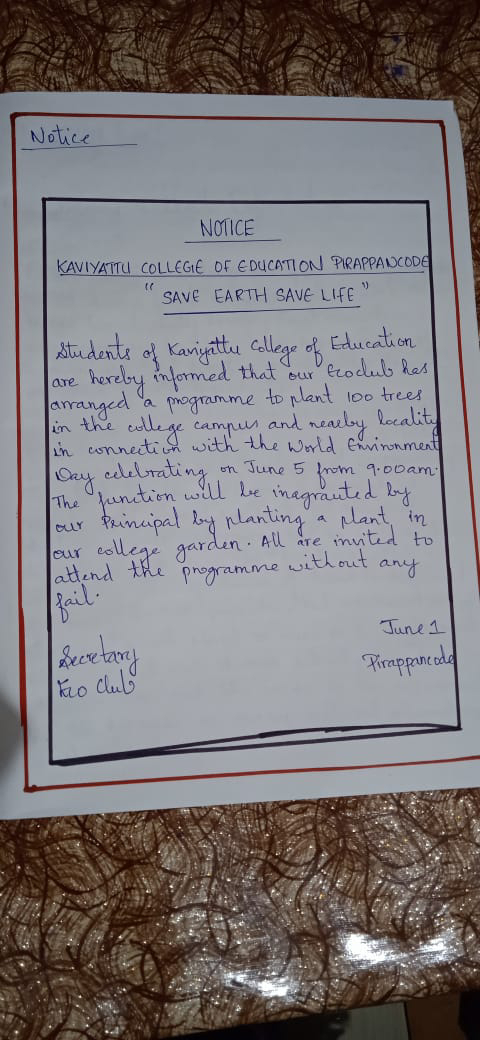 Notice
NOTICE
KAVIYATTU COLLEGE OF EDUCATION PIRAPPANCODE
" SAVE EARTH SAVE LIFE "
Students of Kaviyattu College of Education
are hereby informed that our Ecoclub has
arranged a programme to plant 100 trees
in the college campus and nearby locality
in connection with the World Environment
Day celebrating on June 5 from 9.00am.
The function will be inagrauted by
our Principal by planting a plant in
our college garden. All are invited to
attend the programme without any
fail.
June 1
Secretary
Pirappancode
Eco Club